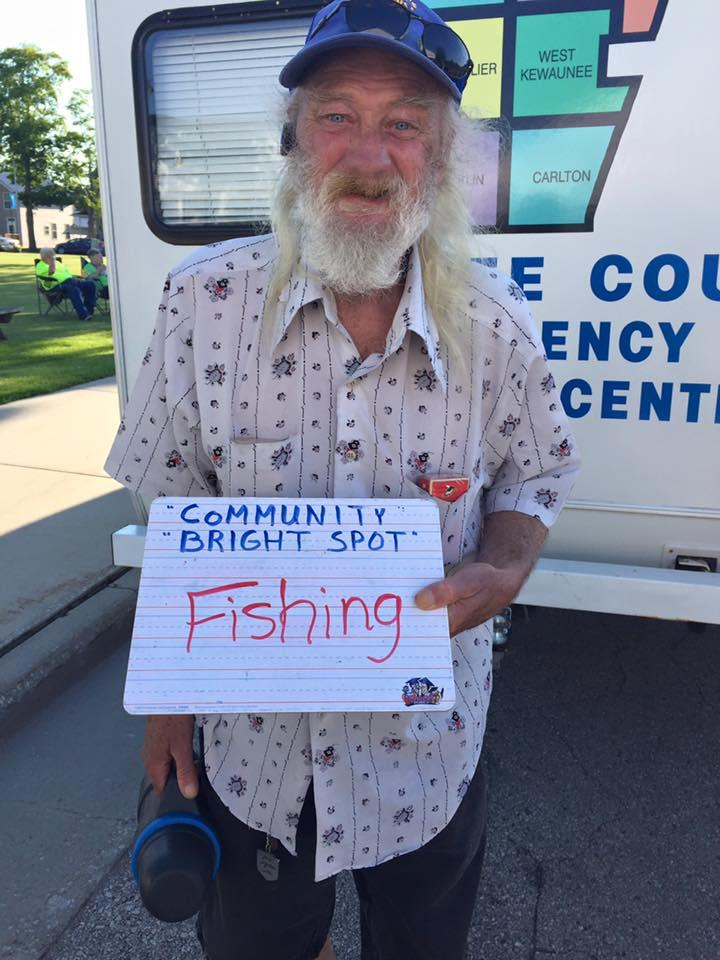 LIER
WEST
KEWAUNEE
LIN
CARLTON
E COU
ENCY
CENT
"COMMUNITY"
"BRIGHT SPOT"
Fishing